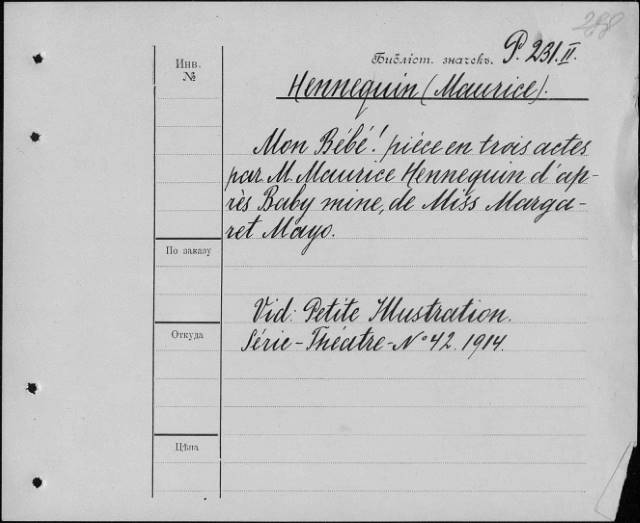 288
Инв.
№
Библіот. значекъ. P. 231.II.
Hennequin (Maurice).
Mon Bébé! pièce en trois actes
par M. Maurice Hennequin d'ap-
rès Baby mine, de Miss Marga-
ret Mayo.
По заказу
Vid: Petite Illustration.
Откуда
Série-Théatre-No 42. 1914.
Цѣна